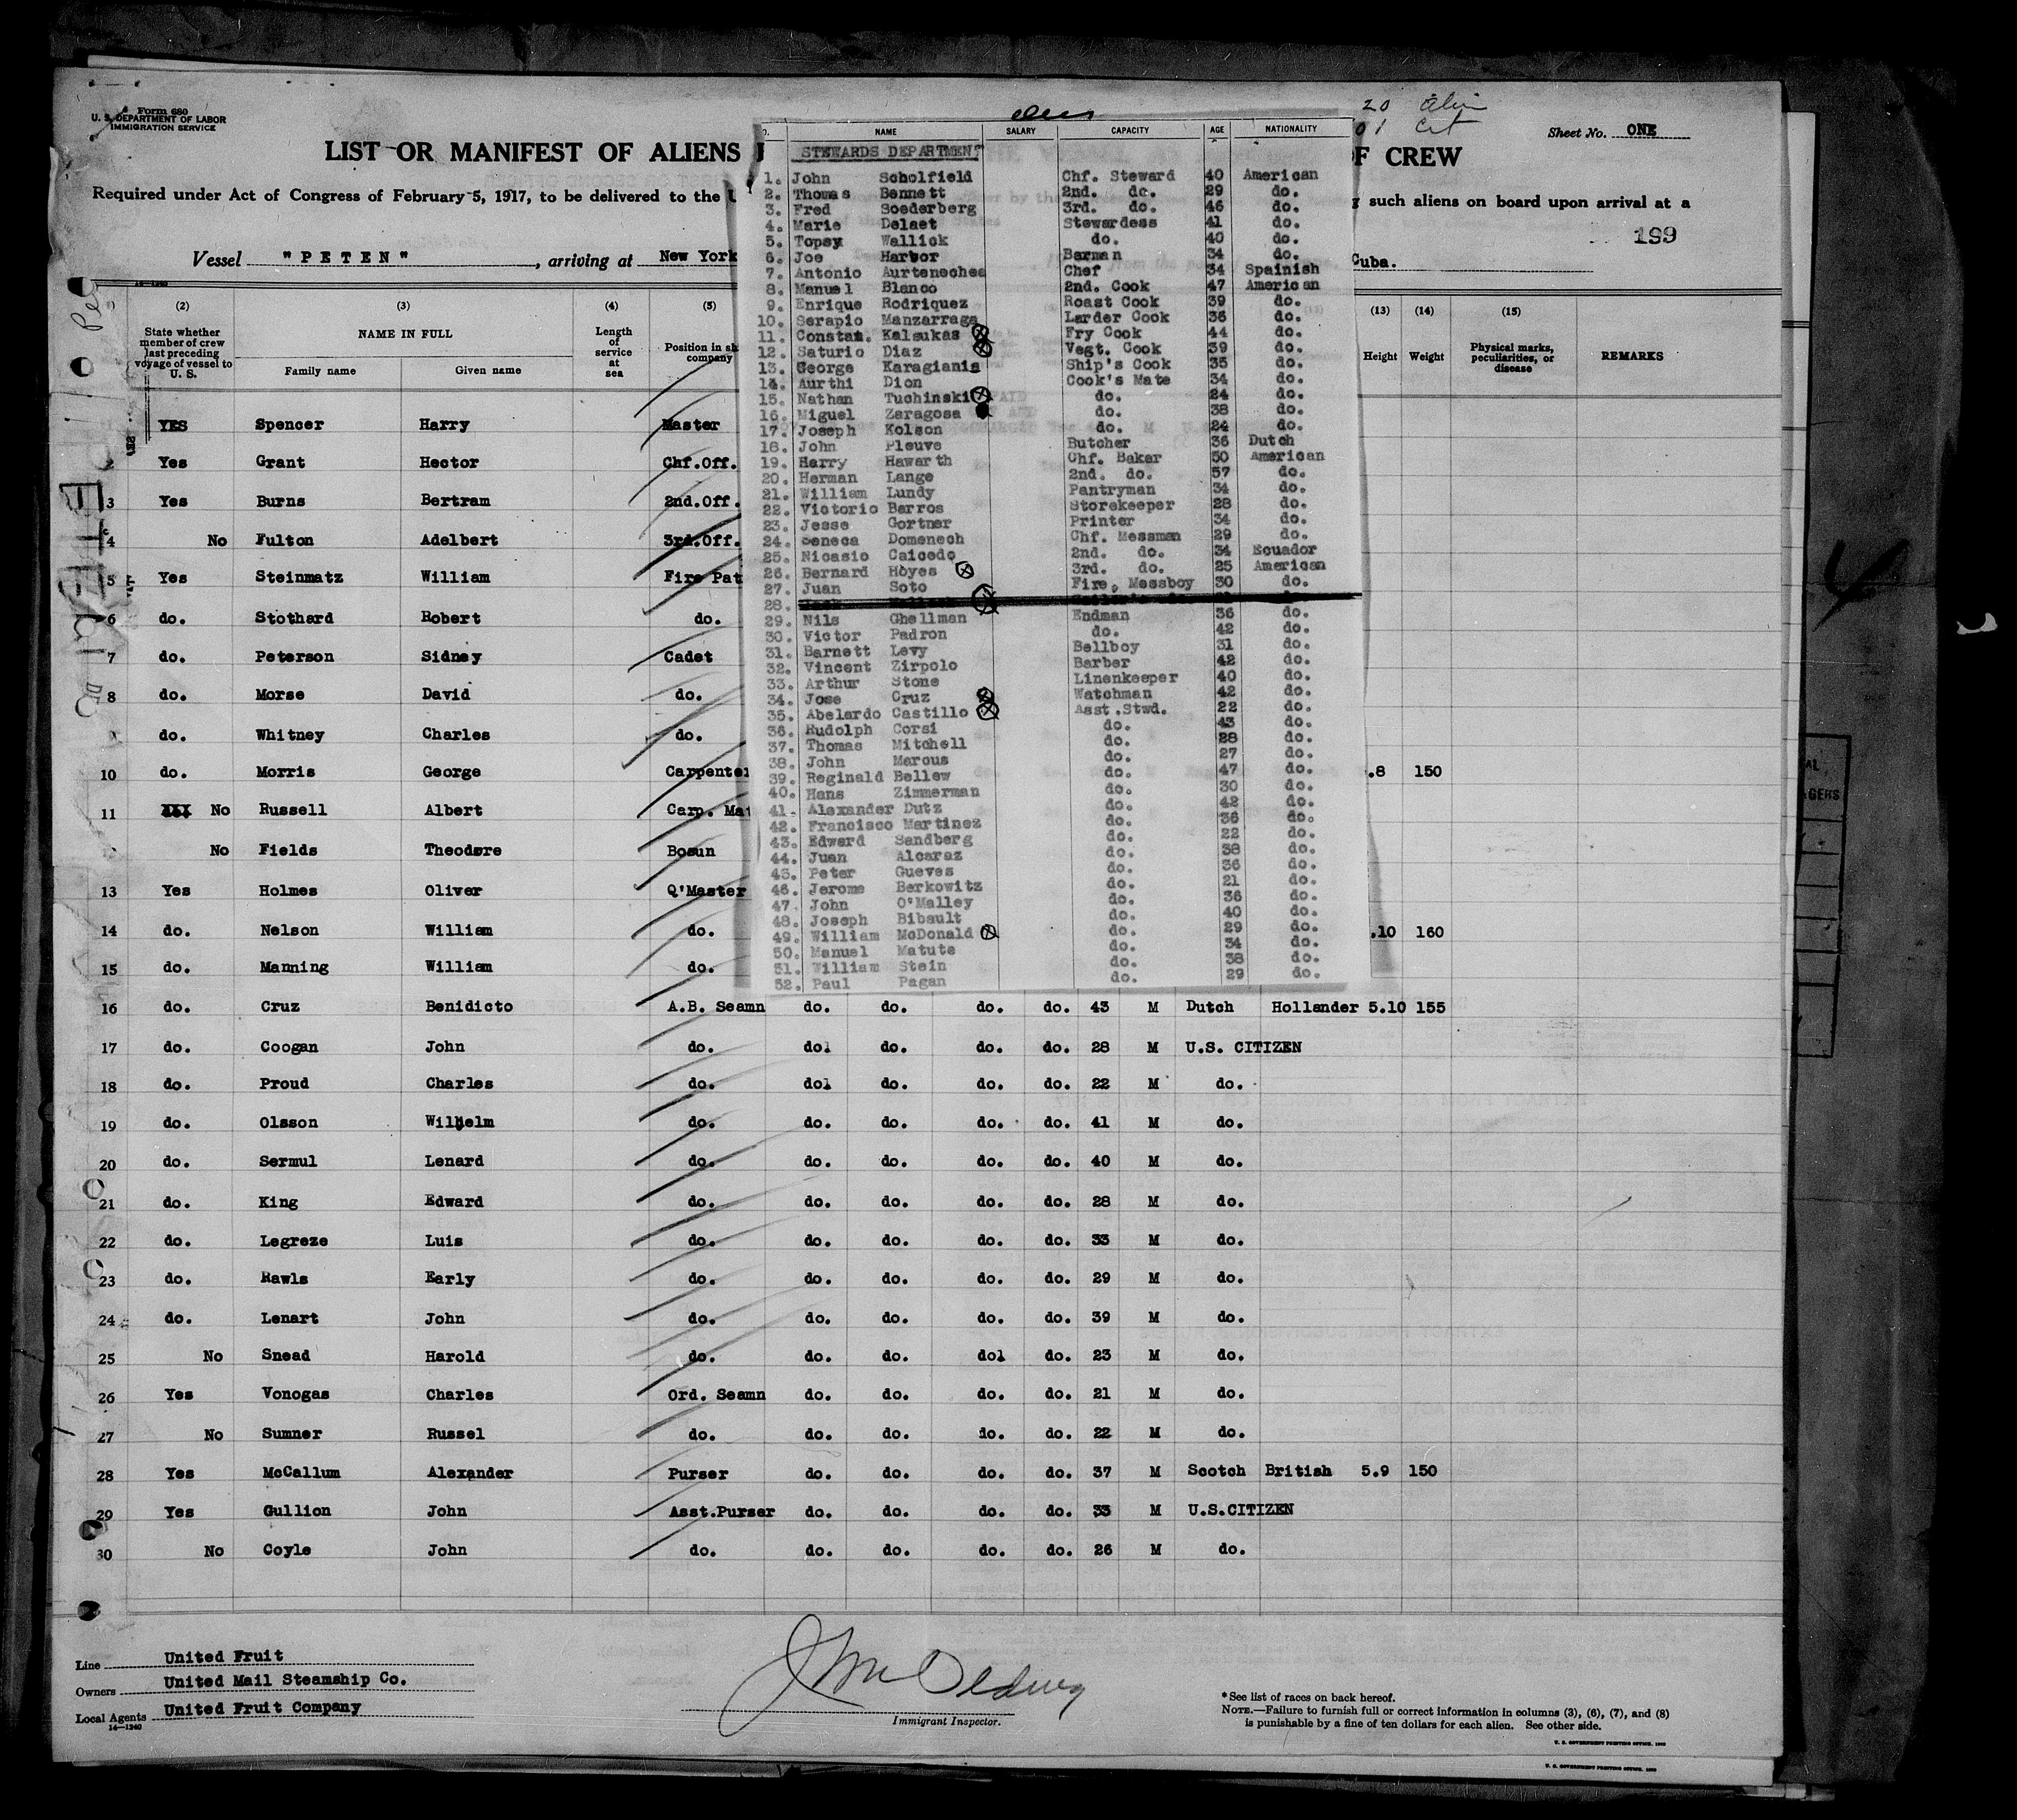 Form 680
U. S. DEPARTMENT OF LABOR
IMMIGRATION SERVICE
Sheet No. ONE
LIST OR MANIFEST OF ALIENS
OF CREW
Required under Act of Congress of February 5, 1917, to be delivered to the
such aliens on board upon arrival at a
199
Vessel "PETEN", arriving at New York
Cuba.
(2) (3) (4) (5) (13) (14) (15)
State whether member of crew last preceding voyage of vessel to U. S.
NAME IN FULL
Family name Given name
Length of service at sea
Position in
company
Height Weight
Physical marks, peculiarities, or disease
REMARKS
YES Spencer Harry Master
2 Yes Grant Hector Chf.Off.
3 Yes Burns Bertram 2nd.Off.
4 No Fulton Adelbert 3rd.Off.
5 Yes Steinmatz William Fire Pat
6 do. Stothard Robert do.
7 do. Peterson Sidney Cadet
8 do. Morse David do.
do. Whitney Charles do.
10 do. Morris George Carpenter .8 150
11 No Russell Albert Carp. Mat
No Fields Theodore Bosun
13 Yes Holmes Oliver Q'Master
14 do. Nelson William do. .10 160
15 do. Manning William do.
16 do. Cruz Benidicto A.B. Seamn do. do. do. do. 43 M Dutch Hollander 5.10 155
17 do. Coogan John do. dol do. do. do. 28 M U.S. CITIZEN
18 do. Proud Charles do. dol do. do. do. 22 M do.
19 do. Olsson Wilhelm do. do. do. do. do. 41 M do.
20 do. Sermul Lenard do. do. do. do. do. 40 M do.
21 do. King Edward do. do. do. do. do. 28 M do.
22 do. Legreze Luis do. do. do. do. do. 33 M do.
23 do. Rawls Early do. do. do. do. do. 29 M do.
24 do. Lenart John do. do. do. do. do. 39 M do.
25 No Snead Harold do. do. do. dol do. 23 M do.
26 Yes Vonogas Charles Ord. Seamn do. do. do. do. 21 M do.
27 No Sumner Russel do. do. do. do. do. 22 M do.
28 Yes McCallum Alexander Purser do. do. do. do. 37 M Scotch British 5.9 150
29 Yes Gullion John Asst.Purser do. do. do. do. 33 M U.S.CITIZEN
30 No Coyle John do. do. do. do. do. 26 M do.
NAME SALARY CAPACITY AGE NATIONALITY
STEWARDS DEPARTMENT
1. John Scholfield Chf. Steward 40 American
2. Thomas Bennett 2nd. do. 29 do.
3. Fred Soederberg 3rd. do. 46 do.
4. Marie Delaet Stewardess 41 do.
5. Topsy Wallick do. 40 do.
6. Joe Harbor Barman 34 do.
7. Antonio Aurtenechea Chef 34 Spainish
8. Manuel Blanco 2nd. Cook 47 American
9. Enrique Rodriquez Roast Cook 39 do.
10. Serapio Manzarraga Larder Cook 36 do.
11. Constan. Kalsukas Fry Cook 44 do.
12. Saturio Diaz Vegt. Cook 39 do.
13. George Karagianis Ship's Cook 35 do.
14. Aurthi Dion Cook's Mate 34 do.
15. Nathan Tuchinski do. 24 do.
16. Miguel Zaragosa do. 38 do.
17. Joseph Kolson do. 24 do.
18. John Pleuve Butcher 36 Dutch
19. Harry Hawarth Chf. Baker 50 American
20. Herman Lange 2nd. do. 57 do.
21. William Lundy Pantryman 34 do.
22. Victorio Barros Storekeeper 28 do.
23. Jesse Gortner Printer 34 do.
24. Seneca Domenech Chf. Messman 29 do.
25. Nicasio Caicedo 2nd. do. 34 Ecuador
26. Bernard Hoyes 3rd. do. 25 American
27. Juan Soto Fire. Messboy 30 do.
28.
29. Nils Ghellman Endman 36 do.
30. Victor Padron do. 42 do.
31. Barnett Levy Bellboy 31 do.
32. Vincent Zirpolo Barber 42 do.
33. Arthur Stone Linenkeeper 40 do.
34. Jose Cruz Watchman 42 do.
35. Abelardo Castillo Asst.Stwd. 22 do.
36. Rudolph Corsi do. 43 do.
37. Thomas Mitchell do. 28 do.
38. John Marcus do. 27 do.
39. Reginald Bellew do. 47 do.
40. Hans Zimmerman do. 30 do.
41. Alexander Dutz do. 42 do.
42. Francisco Martinez do. 36 do.
43. Edward Sandberg do. 22 do.
44. Juan Alcaraz do. 38 do.
45. Peter Gueves do. 36 do.
46. Jerome Berkowitz do. 21 do.
47. John O'Malley do. 36 do.
48. Joseph Bibault do. 40 do.
49. William McDonald do. 29 do.
50. Manuel Matute do. 34 do.
51. William Stein do. 38 do.
52. Paul Pagan do. 29 do.
Line United Fruit
Owners United Mail Steamship Co.
Local Agents United Fruit Company
14—1240
Immigrant Inspector.
*See list of races on back hereof.
NOTE.—Failure to furnish full or correct information in columns (3), (6), (7), and (8)
is punishable by a fine of ten dollars for each alien. See other side.